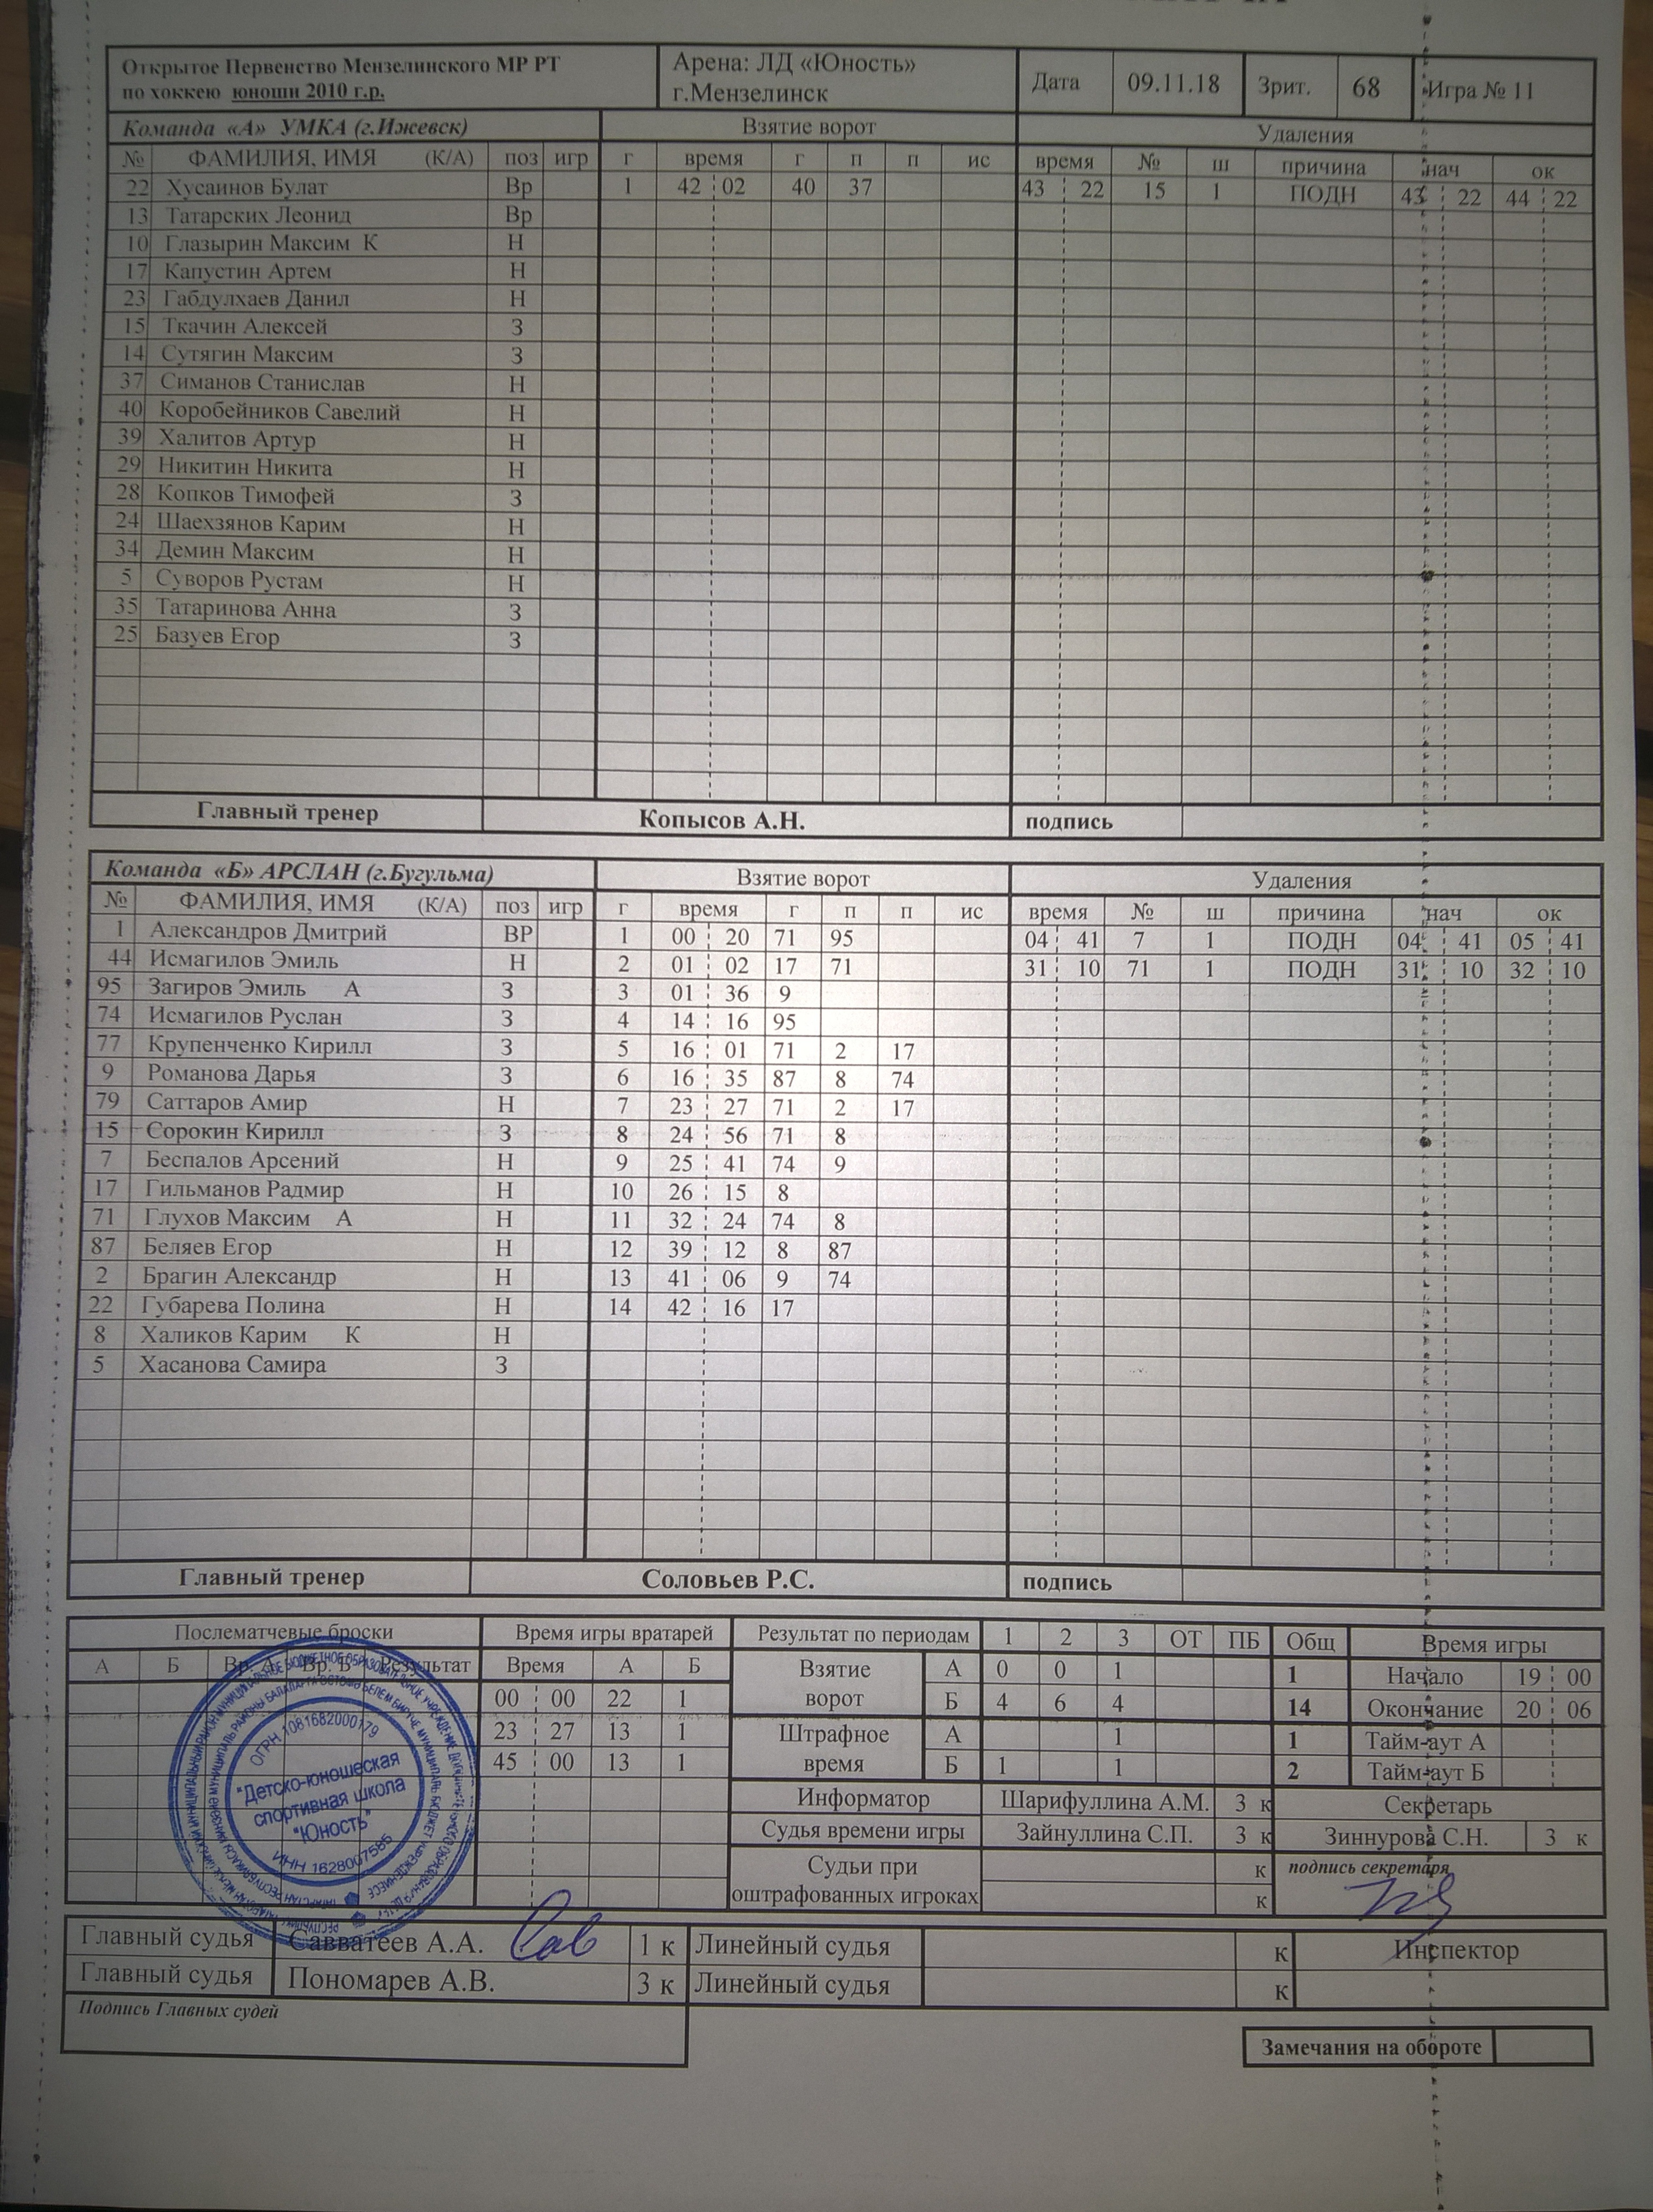 Открытое Первенство Мензелинского МР РТ
по хоккею юноши 2010 г.р.
Арена: ЛД «Юность»
г.Мензелинск
Дата 09.11.18 Зрит. 68 Игра № 11
Команда «А» УМКА (г.Ижевск) Взятие ворот Удаления
№ ФАМИЛИЯ, ИМЯ (К/А) поз игр г время г п п ис время № ш причина нач ок
22 Хусаинов Булат Вр 1 42 02 40 37 43 22 15 1 ПОДН 43 22 44 22
13 Татарских Леонид Вр
10 Глазырин Максим К Н
17 Капустин Артем Н
23 Габдулхаев Данил Н
15 Ткачин Алексей З
14 Сутягин Максим З
37 Симанов Станислав Н
40 Коробейников Савелий Н
39 Халитов Артур Н
29 Никитин Никита Н
28 Копков Тимофей З
24 Шаехзянов Карим Н
34 Демин Максим Н
5 Суворов Рустам Н
35 Татаринова Анна З
25 Базуев Егор З
Главный тренер Копысов А.Н. подпись
Команда «Б» АРСЛАН (г.Бугульма) Взятие ворот Удаления
№ ФАМИЛИЯ, ИМЯ (К/А) поз игр г время г п п ис время № ш причина нач ок
1 Александров Дмитрий ВР 1 00 20 71 95 04 41 7 1 ПОДН 04 41 05 41
44 Исмагилов Эмиль Н 2 01 02 17 71 31 10 71 1 ПОДН 31 10 32 10
95 Загиров Эмиль А З 3 01 36 9
74 Исмагилов Руслан З 4 14 16 95
77 Крупенченко Кирилл З 5 16 01 71 2 17
9 Романова Дарья З 6 16 35 87 8 74
79 Саттаров Амир Н 7 23 27 71 2 17
15 Сорокин Кирилл З 8 24 56 71 8
7 Беспалов Арсений Н 9 25 41 74 9
17 Гильманов Радмир Н 10 26 15 8
71 Глухов Максим А Н 11 32 24 74 8
87 Беляев Егор Н 12 39 12 8 87
2 Брагин Александр Н 13 41 06 9 74
22 Губарева Полина Н 14 42 16 17
8 Халиков Карим К Н
5 Хасанова Самира З
Главный тренер Соловьев Р.С. подпись
Послематчевые броски Время игры вратарей Результат по периодам 1 2 3 ОТ ПБ Общ Время игры
А Б Вр. А Вр. Б Результат Время А Б
Взятие ворот А 0 0 1 1 Начало 19 00
00 00 22 1 Б 4 6 4 14 Окончание 20 06
23 27 13 1 Штрафное время А 1 1 Тайм-аут А
45 00 13 1 Б 1 1 2 Тайм-аут Б
Информатор Шарифуллина А.М. 3 к Секретарь
Судья времени игры Зайнуллина С.П. 3 к Зиннурова С.Н. 3 к
Судьи при оштрафованных игроках к
к
подпись секретаря
ОГРН 1081682000179
"Детско-юношеская
спортивная школа
"Юность"
ИНН 1628007585
Главный судья Савватеев А.А. 1 к Линейный судья к Инспектор
Главный судья Пономарев А.В. 3 к Линейный судья к
Подпись Главных судей
Замечания на обороте